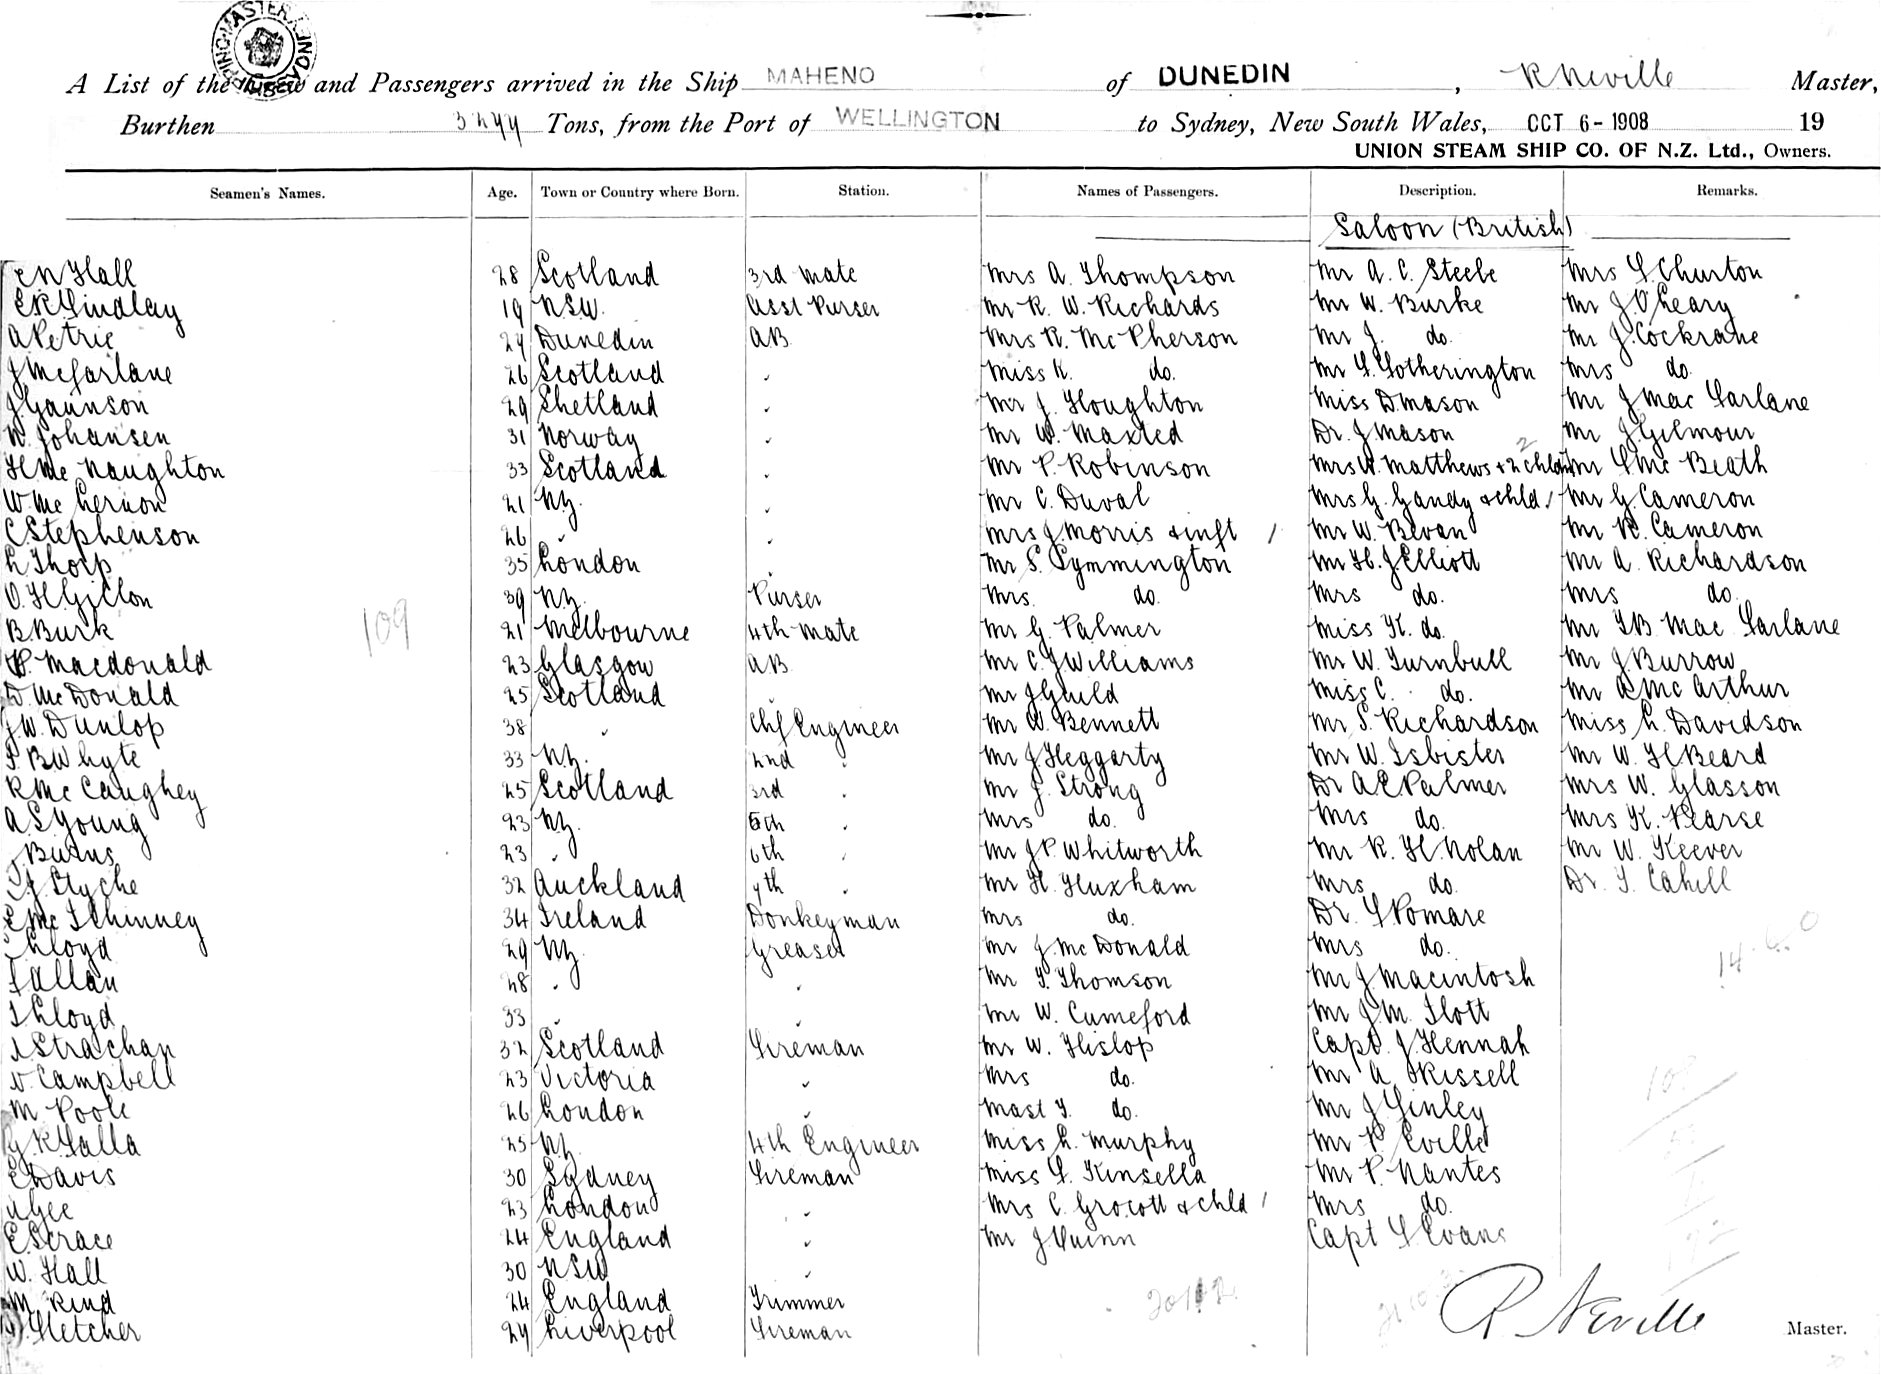 A List of the Crew and Passengers arrived in the Ship MAHENO of DUNEDIN, R Neville Master,
Burthen Tons, from the Port of WELLINGTON to Sydney, New South Wales, OCT 6 - 1908 19
UNION STEAM SHIP CO. OF N.Z. Ltd., Owners.
Seamen's Names. Age. Town or Country where Born. Station. Names of Passengers. Description. Remarks.
Saloon (British)
Hall 28 Scotland 3rd Mate Mrs A. Thompson Mr A. C. Steele Mrs F Churton
E R Findlay 19 N.S.W. Asst Purser Mr R. W. Richards Mr W. Burke Mr J. O'Leary
A Petrie 24 Dunedin AB. Mrs R. McPherson Mr J. do. Mr J. Cockrane
J McFarlane 26 Scotland " Miss K. do. Mr F. Fotherington Mrs do
J Gaunson 29 Shetland " Mr J. Houghton Miss D. Mason Mr J Mac Farlane
N. Johansen 31 Norway " Mr W. Maxted Dr. J Mason Mr J Gilmour
H Mc Naughton 33 Scotland " Mr P. Robinson Mrs W. Matthews + 2 chldn 2 Mr F Mc Beath
W. Mc Lernon 21 N.Z. " Mr C. Duval Mrs G. Gandy & chld 1 Mr G. Cameron
C Stephenson 26 " " Mrs J Morris & inft 1 Mr W. Bevan Mr R. Cameron
L Thorp 35 London " Mr S. Symmington Mr H. J Elliott Mr A. Richardson
O. H Gillon 39 N.Z. Purser Mrs. do. Mrs do. Mrs do
B. Burk 21 Melbourne 4th Mate Mr G. Palmer Miss K. do. Mr T B. Mac Farlane
109
Macdonald 23 Glasgow AB. Mr C. J Williams Mr W. Turnbull Mr J Burrow
D. McDonald 25 Scotland " Mr J Guild Miss C. do. Mr A Mc Arthur
J W. Dunlop 38 " Chf Engineer Mr W. Bennett Mr S. Richardson Miss L. Davidson
B Whyte 33 N.Z. 2nd " Mr J Heggarty Mr W. Isbister Mr W. H Beard
R Mc Caughey 25 Scotland 3rd " Mr J. Strong Dr A E Palmer Mrs W. Glasson
A S Young 23 N.Z. 5th " Mrs do. Mrs do. Mrs K. Pearse
Burns 23 " 6th " Mr J P. Whitworth Mr R. H. Nolan Mr W. Keever
J Styche 32 Auckland 7th " Mr H. Huxham Mrs do. Dr. T. Cahill
Mc Ilhinney 34 Ireland Donkeyman Mrs do. Dr. Pomare
Lloyd 29 N.Z. Greaser Mr J. Mc Donald Mrs do.
Allan 28 " " Mr T. Thomson Mr J Macintosh
Lloyd 33 " " Mr W. Cumeford Mr J. M. Ilott
Strachan 32 Scotland Fireman Mr W. Hislop Capt. J. Hennah
Campbell 23 Victoria " Mrs do. Mr A Rissell
M Poole 26 London " Mast T. do. Mr J Finley
G R Falla 25 N.Z. 4th Engineer Miss L. Murphy Mr Eville
E Davis 30 Sydney Fireman Miss F. Kinsella Mr P. Nantes
Gee 23 London " Mrs C. Grocott & chld 1 Mrs do.
E Scrace 24 England " Mr J Quinn Capt F Evans
W. Hall 30 NSW "
M King 24 England Trimmer
Fletcher 24 Liverpool Fireman
R Neville Master.